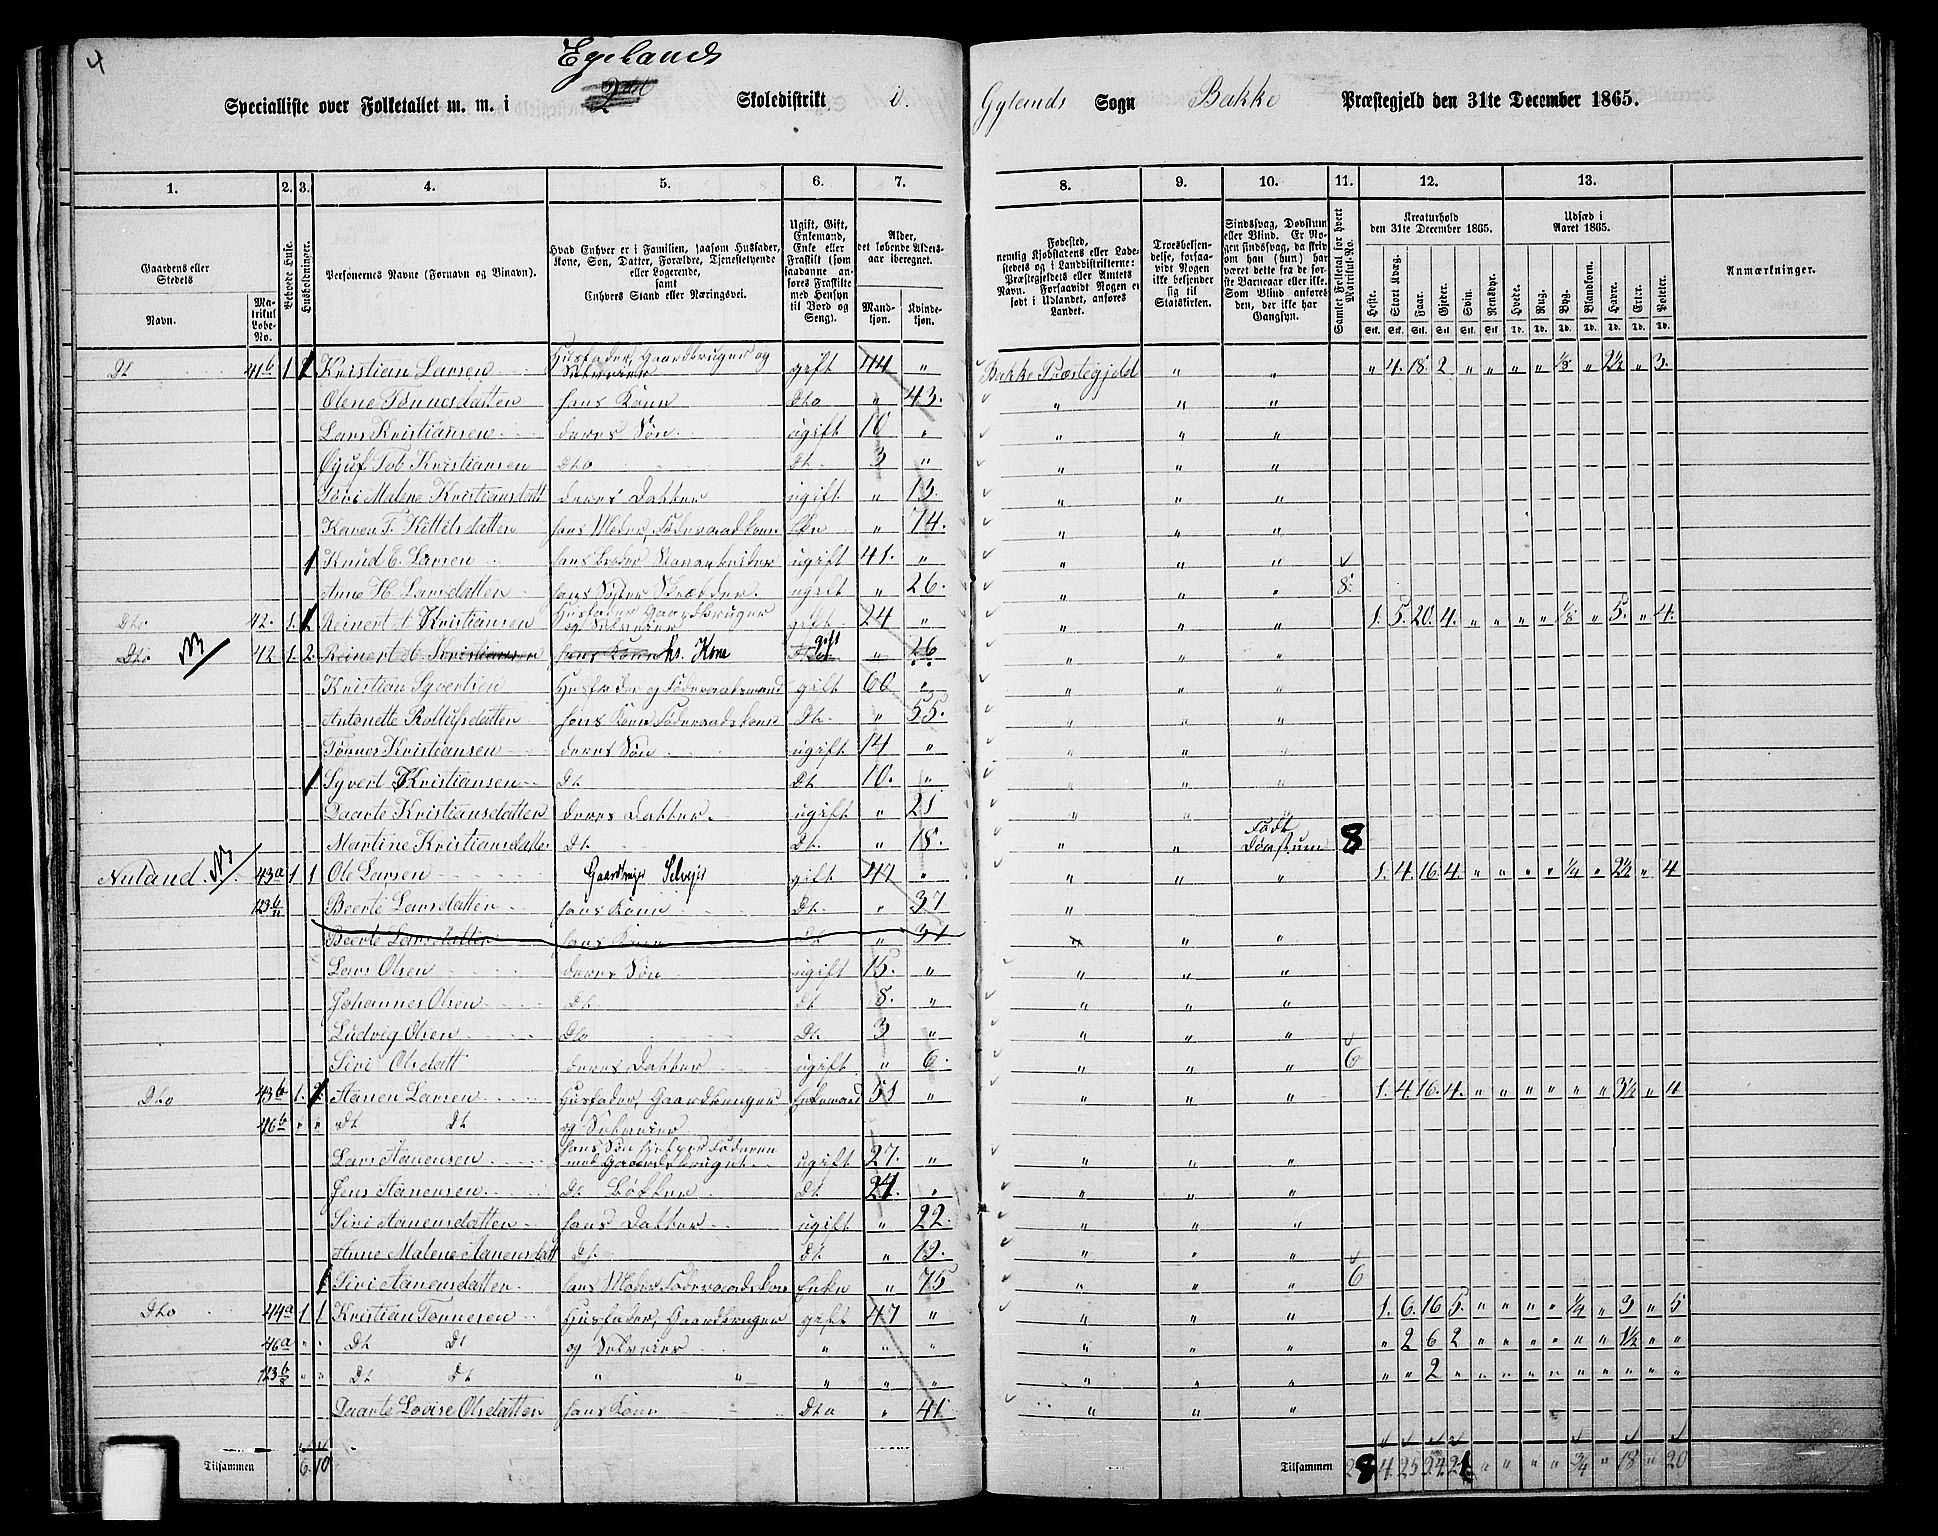 4
Egelands
Specialliste over Folketallet m. m. i 2det Skoledistrikt i Gylands Sogn Bakke Præstegjeld den 31te December 1865.
1. 2. 3. 4. 5. 6. 7. 8. 9. 10. 11. 12. 13.
Gaardens eller Stedets Navn.
Matrikul Løbe-No.
Beboede Huse.
Husholdninger.
Personernes Navne (Fornavn og Binavn).
Hvad Enhver er i Familien, saasom Husfader, Kone, Søn, Datter, Forældre, Tjenestetyende eller Logerende, samt Enhvers Stand eller Næringsvei.
Ugift, Gift, Enkemand, Enke eller Fraskilt (som saadanne anføres Fraskilte med Hensyn til Bord og Seng).
Alder, det løbende Alders-aar iberegnet.
Mandkjøn. Kvindekjøn.
Fødested, nemlig Kjøbstadens eller Ladestedets og i Landdistrikterne: Præstegjeldets eller Amtets Navn. Forsaavidt Nogen er født i Udlandet, anføres Landet.
Troesbekjendelse, forsaavidt Nogen ikke bekjender sig til Statskirken.
Sindssvag, Døvstum eller Blind. Er Nogen sindssvag, da skrives om han (hun) har været dette fra de første Barneaar eller ikke. Som Blind anføres den, der ikke har Gangsyn.
Samlet Folketal for hvert Matrikul-No.
Kreaturhold den 31te December 1865.
Heste. Stort Kvæg. Faar. Gjeder. Svin. Rensdyr.
Udsæd i Aaret 1865.
Hvede. Rug. Byg. Blandkorn. Havre. Erter. Poteter.
Anmærkninger.
Dt 41b 1 1 Kristian Larsen Husfader, Gaardbruger og Selveier gift 44 " Bakke Præstegjeld " " " 4. 18. 2 " " " " 1/8 " 2 1/2 " 3.
Olene Tønnesdatten hans Kone Dto " 43. " " "
Lars Kristiansen deres Søn ugift 10 " " " "
Dto Dt. 3 " " " "
Siri Malene Kristiansdatt deres Datter ugift " 13. " " "
Karen T. Kittilsdatten hans Moder, Føderaadskone Enke " 74. " " "
1 Knud E. Larsen hans Broder ugift 41. " " " "
Anne H. Larsdatten hans Søster ugift " 26. " " " 8.
Dto 42. 1. 1 Reinert A Kristiansen Husfader Gaardbruger og Selveier gift 24 " " " " 1. 5. 20. 4. " " " " 1/8 " 5. " 4.
Dto NB 42 1. 2. Reinert A. Kristiansen hans Kone hs. Kone gift " 26 " " "
Kristian Syvertsen Husfader og Føderaadsmand gift 60 " " " "
Antonette Rolfusdatten hans Kone Føderaadskone Dt. " 55. " " "
Tønnes Kristiansen deres Søn ugift 14 " " " "
1 Syvert Kristiansen Dt Dt 10. " " " "
Daarte Kristiansdatten deres Datter. ugift " 21 " " "
Martine Kristiansdatte Dt. Dt. " 18. " " Født Døvstum 8
Nuland NB 43a 1 1 Ole Larsen Gaardbruger Selveier gift 47 " " " " 1. 4. 16. 4. " " " " 1/4 " 2 1/2 " 4
123b/11 Beerte Larsdatten hans Kone Dt. " 37 "
Beerte Larsdatten hans Kone Dt " 31 " " "
Lars Olsen deres Søn ugift 15. " " " "
Johannes Olsen Dt Dt 8. " " " "
Ludvig Olsen Dto Dt. 3 " " " "
Siri Olsdatt deres Datter ugift " 6. " " " 6
Dto 43b 1. 1 Aanen Larsen Husfader, Gaardbruger Enkemand 51 " " " " 1. 4. 16. 4. " " " " " " 3 1/2 " 4
46b " " Dt Dt og Selveier
Lars Aanensen hans Søn hjelper Faderen med Gaardsbruget ugift 27. " " " "
Jens Aanensen Dt Bøkker Dt 24. " " " "
Siri Aanensdatten hans Datter ugift " 22. " " "
Anne Malene Aanensdatt Dt. Dt. " 12. " " "
1 Siri Aanensdatten hans Moder Føderaadskone Enke " 75 " " " 6
Dto 44a 1 1 Kristian Tønnesen Husfader, Gaardbruger gift 47 " " " " 1. 6. 16 5. " " " " 1/4 " 3 " 5
46a " " Dt Dt og Selveier " " " " " " " 2 6 2 " " " " " " 1 1/2 " "
123b/8 " " Dt Dt " " " " " " " " " " 2 " " " " " " " " " "
Daarte Lovise Olsdatten hans Kone Dto " 41 " " "
Tilsammen 6. 10
Tilsammen 28 4 25 " " " " 3/4 " 18 " 20